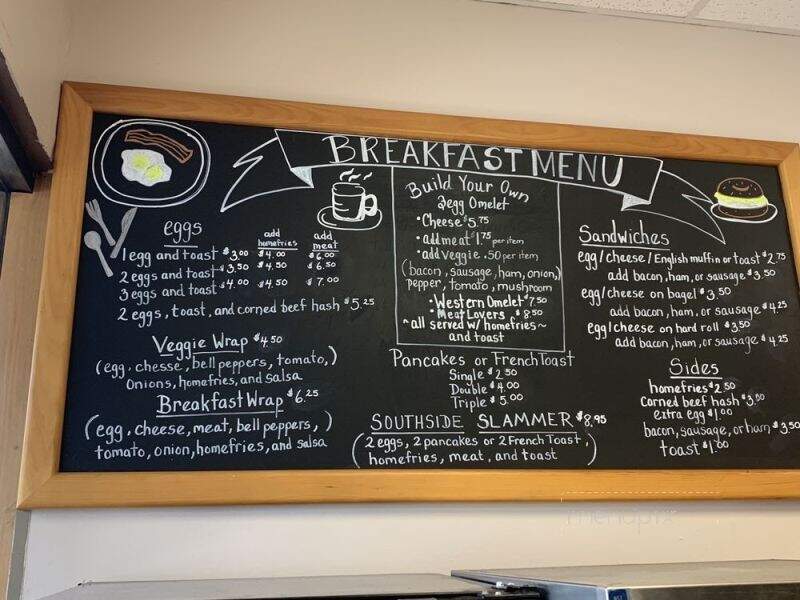 BREAKFAST MENU
eggs
add homefries
add meat
1 egg and toast $3.00 $4.00 $6.00
2 eggs and toast $3.50 $4.50 $6.50
3 eggs and toast $4.00 $4.50 $7.00
2 eggs, toast, and corned beef hash $5.25
Veggie Wrap $4.50
(egg, chesse, bell peppers, tomato,)
onions, homefries, and salsa
Breakfast Wrap $6.25
(egg, cheese, meat, bell peppers,)
tomato, onion, homefries, and salsa
Build Your Own
2egg Omelet
• Cheese $5.75
• add meat $1.75 per item
• add veggie .50 per item
(bacon, sausage, ham, onion,)
pepper, tomato, mushroom
• Western Omelet $7.50
• Meat Lovers $8.50
~all served w/ homefries~
and toast
Pancakes or French Toast
Single $2.50
Double $4.00
Triple $5.00
SOUTHSIDE SLAMMER $8.95
(2 eggs, 2 pancakes or 2 French Toast,)
homefries, meat, and toast
Sandwiches
egg/cheese/English muffin or toast $2.75
add bacon, ham, or sausage $3.50
egg/cheese on bagel $3.50
add bacon, ham, or sausage $4.25
egg/cheese on hard roll $3.50
add bacon, ham, or sausage $4.25
Sides
homefries $2.50
Corned beef hash $3.50
extra egg $1.00
bacon, sausage, or ham $3.50
toast $1.00
menupix